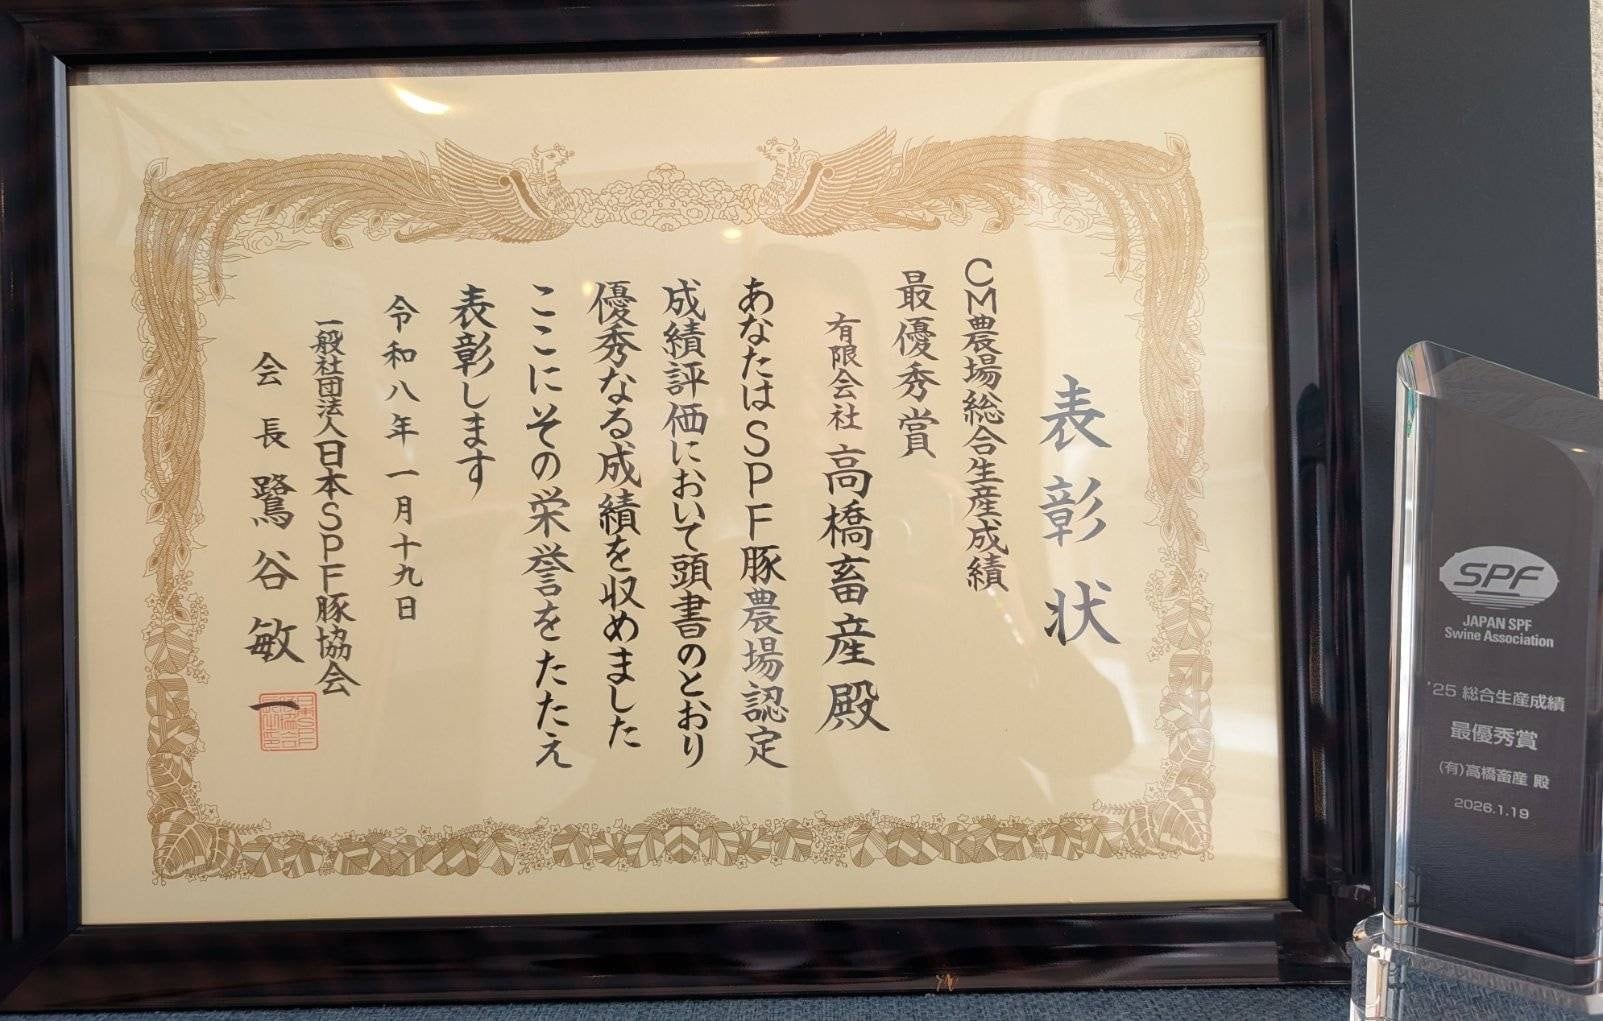 表彰状
CM農場総合生産成績
最優秀賞
有限会社 高橋畜産 殿
あなたはSPF豚農場認定
成績評価において頭書のとおり
優秀なる成績を収めました
ここにその栄誉をたたえ
表彰します
令和八年一月十九日
一般社団法人日本SPF豚協会
会長 鷺谷敏一
SPF
JAPAN SPF
Swine Association
'25 総合生産成績
最優秀賞
(有)高橋畜産 殿
2026.1.19